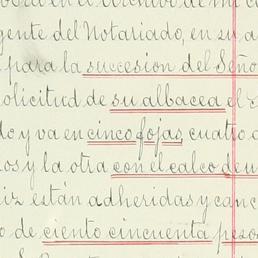 gente del Notariado, en su a
para la succesion del Seño
olicitud de su albacea el
do y va en cinco fojas, cuatro
os y la otra con el calco de u
iz están adheridas y canc
o de ciento cincuenta pesos